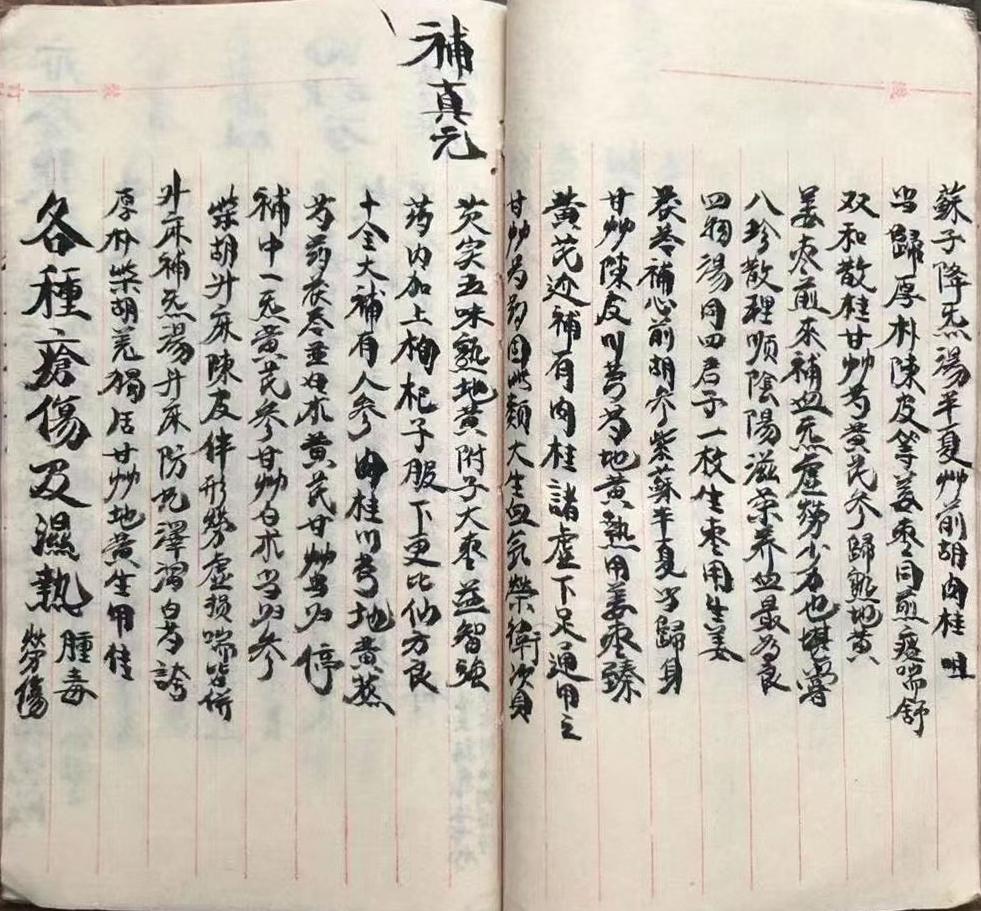 蘇子降炁湯半夏艸前胡肉桂咀
当歸厚朴陳皮等姜枣同煎痰喘舒
双和散桂甘艸芍黄芪參歸熟地黄
姜枣煎來補血炁虛勞少力也堪嘗
八珍散理順陰陽滋荣养血最为良
四物湯同四君子一枚生枣用生姜
茯苓補心前胡參紫蘇半夏当歸身
甘艸陳皮川芎芍地黄熟用姜枣臻
黄芪建補有肉桂諸虛不足通用之
甘艸当芍同此類大生血氣榮衛次身
補真元
芡实五味熟地黄附子大枣益智強
药内加上枸杞子服下更比仙方良
十全大補有人參肉桂川芎地黄蒸
芍药茯苓並白术黄芪甘艸当归停
補中一炁黄芪參甘艸白术当归參
柴胡升麻陳皮伴形勞虛損喘皆併
升麻補炁湯升麻防芪澤瀉白芍誇
厚朴柴胡羌獨活甘艸地黄生用佳
各種瘡傷及濕熱
腫毒
勞傷